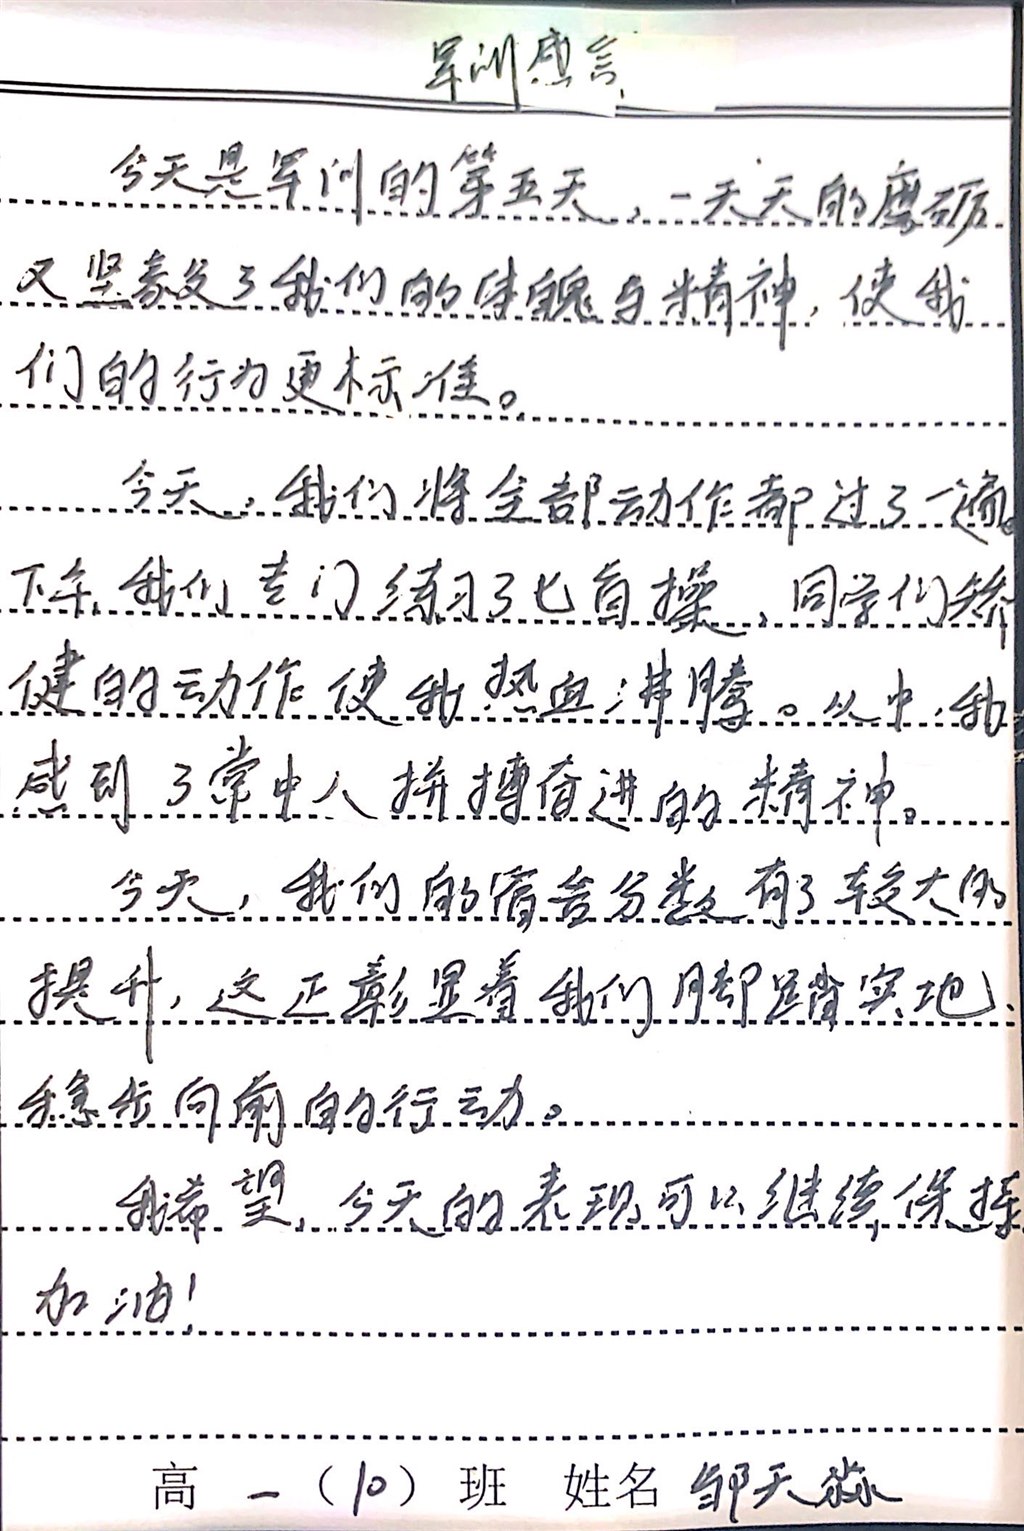 军训感言
今天是军训的第五天,一天天的磨砺
又坚毅了我们的体魄与精神,使我
们的行为更标准。
今天,我们将全部动作都过了一遍。
下午,我们专门练习了匕首操,同学们矫
健的动作使我热血沸腾。从中,我
感到了常中人拼搏奋进的精神。
今天,我们的宿舍分数有了较大的
提升,这正彰显着我们脚踏实地、
稳步向前的行动。
我希望,今天的表现可以继续保持
加油!
高一(10)班 姓名 邹天淼